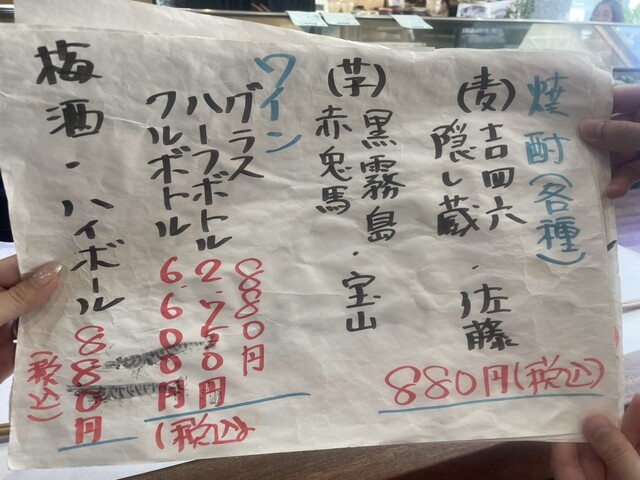 焼酎(各種)
(麦)吉四六・佐藤
隠し蔵
(芋)黒霧島・宝山
赤兎馬
880円(税込)
ワイン
グラス 880円
ハーフボトル 2,750円
フルボトル 6,600円
(税込)
梅酒・ハイボール 880円
(税込)